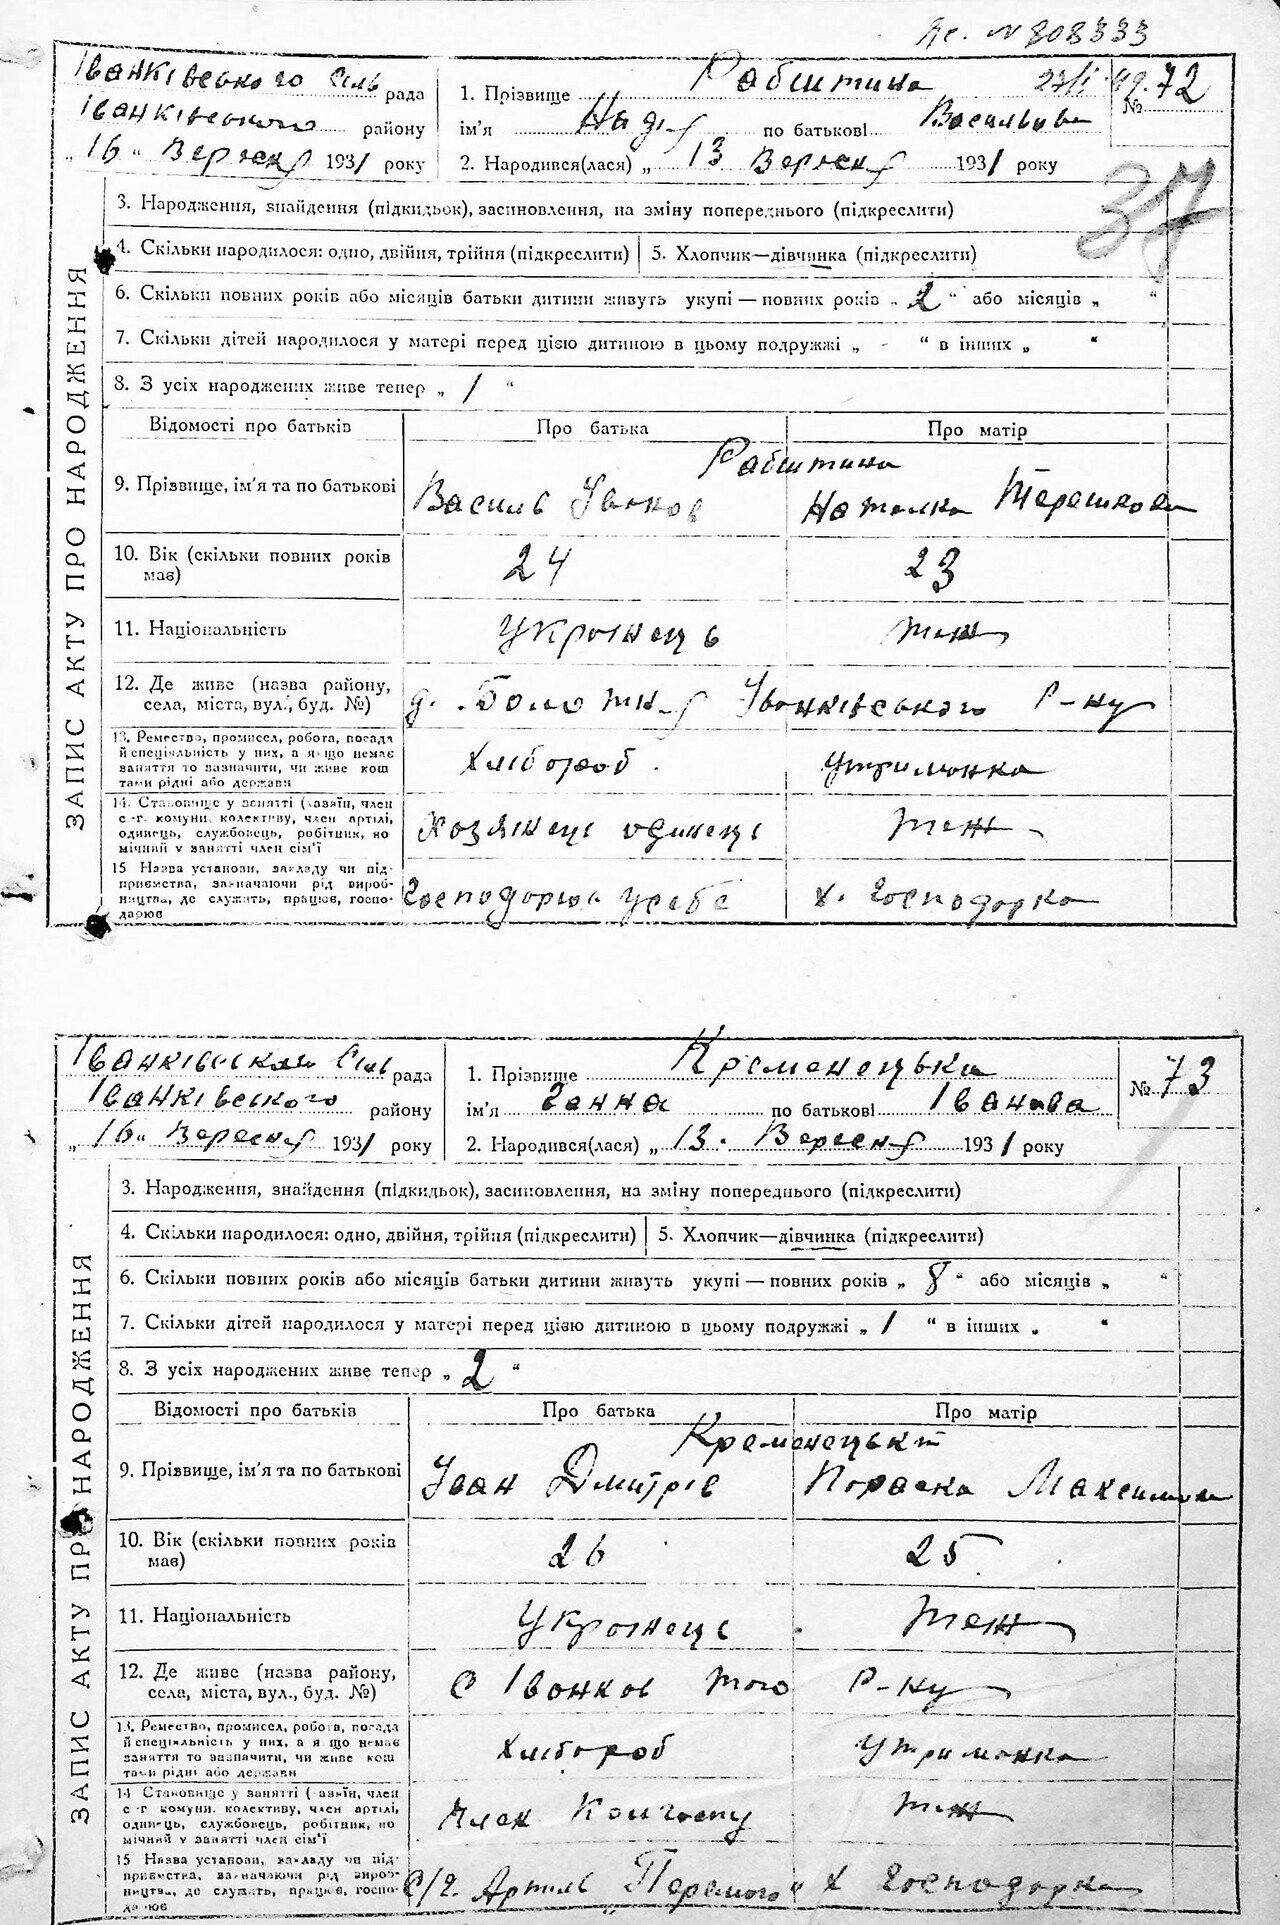 Пс. № 808333
Іванківського Сіль рада
Іванківського району
„16“ Вересня 1931 року
1. Прізвище Рабштина
27/I-49.
№ 72
ім'я Надія по батькові Васильова
2. Народився(лася) „13 Вересня 1931 року
37
ЗАПИС АКТУ ПРО НАРОДЖЕННЯ
3. Народження, знайдення (підкидьок), засиновлення, на зміну попереднього (підкреслити)
4. Скільки народилося: одно, двійня, трійня (підкреслити) 5. Хлопчик—дівчинка (підкреслити)
6. Скільки повних років або місяців батьки дитини живуть укупі — повних років „2“ або місяців „ “
7. Скільки дітей народилося у матері перед цією дитиною в цьому подружжі „ - “ в інших „ “
8. З усіх народжених живе тепер „1“
Відомості про батьків Про батька Про матір
Рабштина
9. Прізвище, ім'я та по батькові Василь Іванов Наталка Терешкова
10. Вік (скільки повних років має) 24 23
11. Національність Українець теж
12. Де живе (назва району, села, міста, вул., буд. №) д. Болотня Іванківського Р-ну
13. Ремество, промисел, робота, посада
й спеціяльність у них, а якщо немає
заняття то зазначити, чи живе кош
тами рідні або держави
Хлібороб утриманка
14. Становище у занятті (хазяїн, член
с.-г. комуни, колективу, член артілі,
одинець, службовець, робітник, по
мічний у занятті член сім'ї
Хозяінець одинець теж
15 Назва установи, закладу чи під-
приємства, зазначаючи рід вироб-
ництва, де служить, працює, госпо-
дарює
Господорює у себе х. Господорка
Іванківськая Сіль рада
Іванківського району
„16“ Вересня 1931 року
1. Прізвище Кременецька
№ 73
ім'я Ганна по батькові Іванова
2. Народився(лася) „13. Вересня 1931 року
ЗАПИС АКТУ ПРО НАРОДЖЕННЯ
3. Народження, знайдення (підкидьок), засиновлення, на зміну попереднього (підкреслити)
4. Скільки народилося: одно, двійня, трійня (підкреслити) 5. Хлопчик—дівчинка (підкреслити)
6. Скільки повних років або місяців батьки дитини живуть укупі — повних років „8“ або місяців „ “
7. Скільки дітей народилося у матері перед цією дитиною в цьому подружжі „1“ в інших „ “
8. З усіх народжених живе тепер „2“
Відомості про батьків Про батька Про матір
Кременецькі
9. Прізвище, ім'я та по батькові Іван Дмитрів Параска Максимова
10. Вік (скільки повних років має) 26 25
11. Національність Українець теж
12. Де живе (назва району, села, міста, вул., буд. №) с Іванков того Р-ну
13. Ремество, промисел, робота, посада
й спеціяльність у них, а якщо немає
заняття то зазначити, чи живе кош
тами рідні або держави
Хлібороб утриманка
14 Становище у занятті (хазяїн, член
с-г комуни, колективу, член артілі,
одинець, службовець, робітник, по
мічний у занятті член сім'ї
Член Колгоспу теж
15 Назва установи, закладу чи під-
приємства, зазначаючи рід вироб-
ництва, де служить, працює, госпо-
дарює
С/г. Артиль „Перемога“ х Господорка